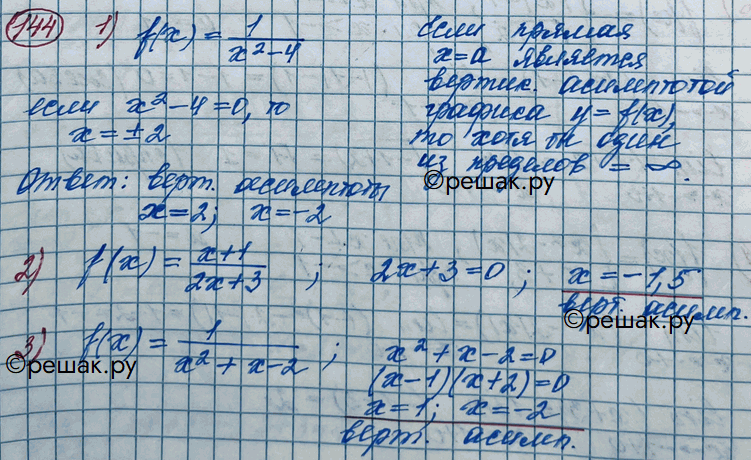 144 1) f(x) = 1/(x² - 4)
если прямая
x = a является
вертик. асимптотой
графика y = f(x),
то хотя бы один
из пределов = ∞.
©решак.ру
если x² - 4 = 0, то
x = ± 2
Ответ: верт. асимптоты
x = 2; x = -2
2) f(x) = (x+1)/(2x+3) ; 2x+3 = 0 ; x = -1,5
верт. асимп.
©решак.ру
3) f(x) = 1/(x² + x - 2) ; x² + x - 2 = 0
©решак.ру
(x-1)(x+2) = 0
x = 1; x = -2
верт. асимп.